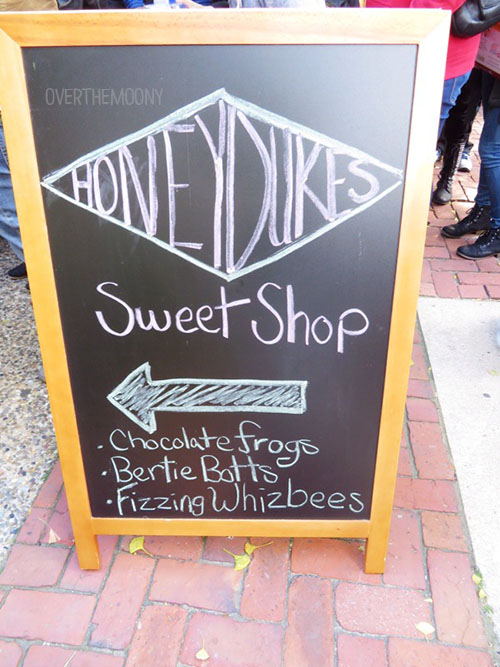 OVERTHEMOONY
HONEYDUKES
Sweet Shop
· Chocolate frogs
· Bertie Botts
· Fizzing Whizbees